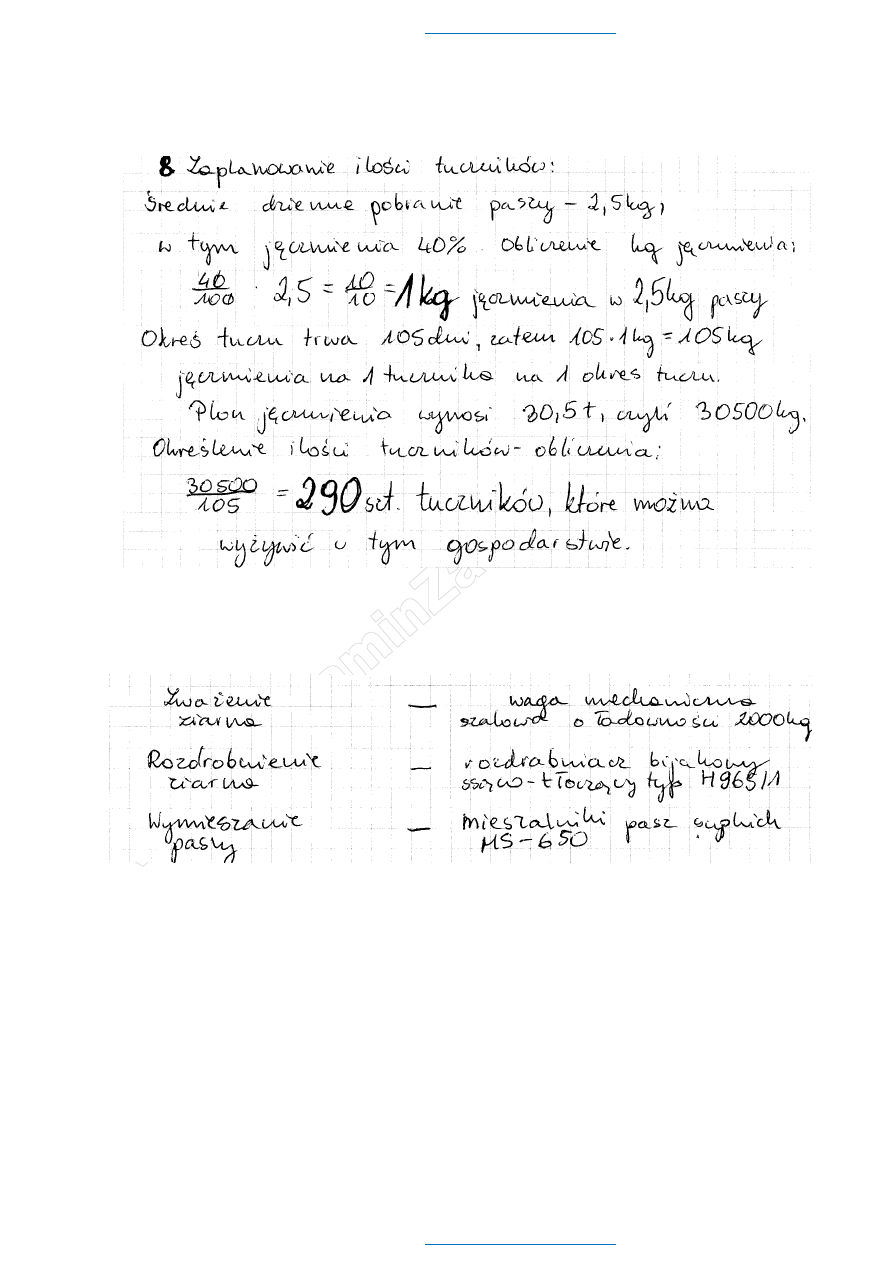 8 Zaplanowanie ilości tuczników:
Średnie dzienne pobranie paszy - 2,5kg,
w tym jęczmienia 40%. Obliczenie kg jęczmienia:
40/100 · 2,5 = 10/10 = 1kg jęczmienia w 2,5kg paszy
Okreś tuczu trwa 105 dni, zatem 105·1kg = 105kg
jęczmienia na 1 tucznika na 1 okres tuczu.
Plon jęczmienia wynosi 30,5t, czyli 30500kg.
Określenie ilości tuczników - obliczenia:
30500/105 = 290 szt. tuczników, które można
wyżywić w tym gospodarstwie.
ominZa
Zważenie — waga mechaniczna
ziarna szalowa o ładowności 2000kg
Rozdrobnienie — rozdrabniacz bijakowy
ziarna ssąco-tłoczący typ H965/1
Wymieszanie — mieszalniki pasz sypkich
paszy MS-650